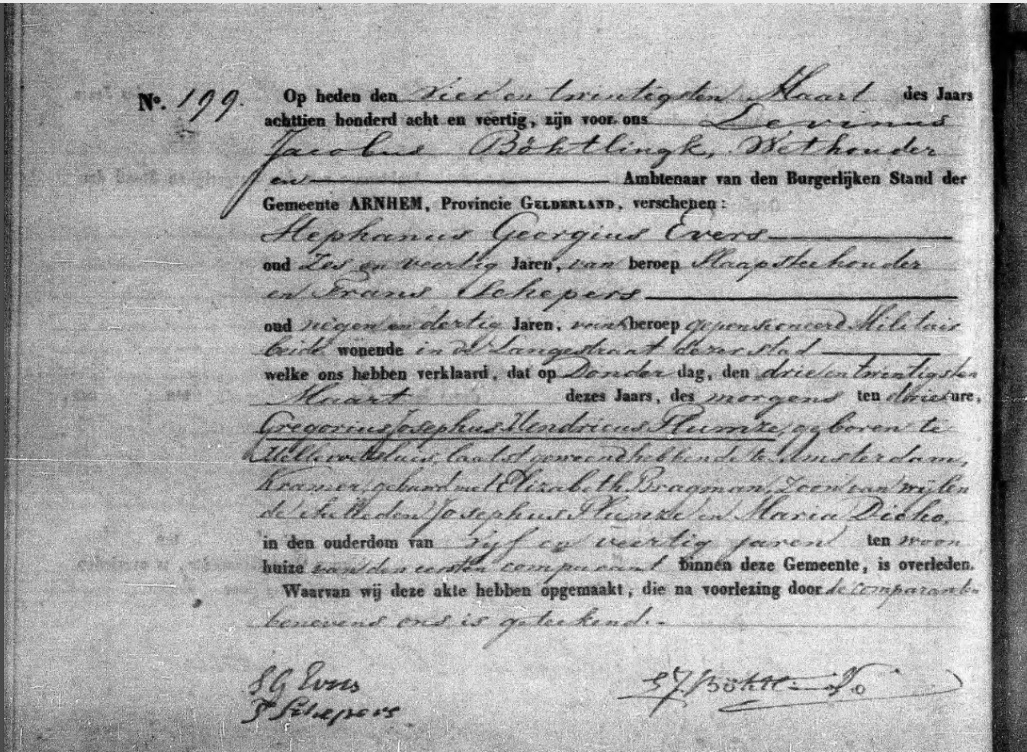 No. 199. Op heden den vier en twintigsten Maart des Jaars
achttien honderd acht en veertig, zijn voor ons Levinus
Jacobus Böhtlingk, Wethouder
en Ambtenaar van den Burgerlijken Stand der
Gemeente ARNHEM, Provincie GELDERLAND, verschenen:
Stephanus Georgius Evers
oud Zes en veertig Jaren, van beroep Slaapsteehouder
en Frans Schepers
oud negen en dertig Jaren, van beroep gepensioneerd Militair
beide wonende in de Langestraat dezer stad
welke ons hebben verklaard, dat op Donder dag, den drie en twintigsten
Maart dezes Jaars, des morgens ten drie ure,
Gregorius Josephus Hendricus Plumze, geboren te
Hellevoetsluis, laatst gewoond hebbende te Amsterdam,
Kramer, gehuwd met Elizabeth Bragman, Zoon van wijlen
de echtelieden Josephus Plumze en Maria
in den ouderdom van vijf en veertig jaren ten woon
huize van den eersten comparant binnen deze Gemeente, is overleden.
Waarvan wij deze akte hebben opgemaakt, die na voorlezing door de comparanten
benevens ons is geteekend.
S G Evers
F Schepers